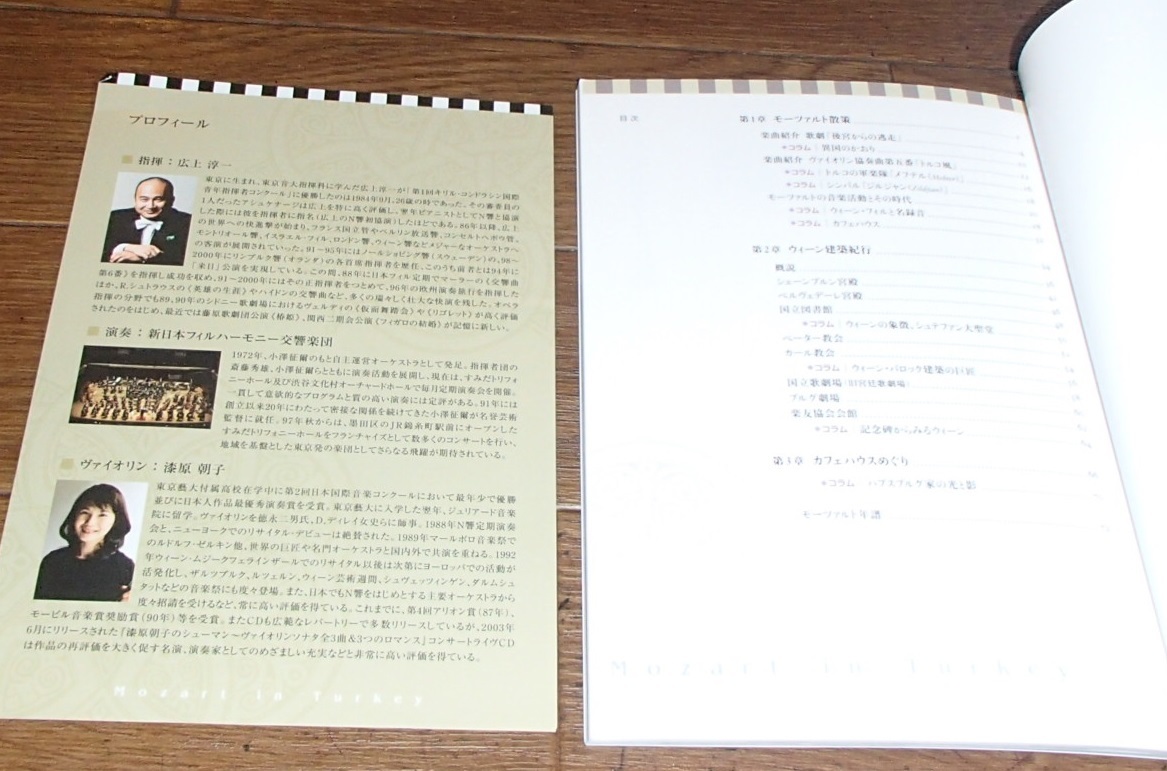 プロフィール
指揮：広上 淳一
東京に生まれ、東京音大指揮科に学んだ広上淳一が「第1回キリル・コンドラシン国際
青年指揮者コンクール」に優勝したのは1984年9月、26歳の時であった。その審査員の
1人だったアシュケナージは広上を特に高く評価し、翌年ピアニストとしてN響と協演
した際には彼を指揮者に指名（広上のN響初協演）したほどである。86年以降、広上
の世界への快進撃が始まり、フランス国立管やベルリン放送響、コンセルトヘボウ管、
モントリオール響、イスラエル・フィル、ロンドン響、ウィーン響などメジャーなオーケストラへ
の客演が展開されていった。91～95年にはノールショピング響（スウェーデン）の、98～
2000年にリンブルク響（オランダ）の各首席指揮者を歴任、このうち前者とは94年に
「来日」公演を実現している。この間、88年に日本フィル定期でマーラーの《交響曲
第6番》を指揮し成功を収め、91～2000年にはその正指揮者をつとめて、96年の欧州演奏旅行を指揮した
ほか、R.シュトラウスの《英雄の生涯》やハイドンの交響曲など、多くの瑞々しく壮大な快演を残した。オペラ
指揮の分野でも89、90年のシドニー歌劇場におけるヴェルディの《仮面舞踏会》や《リゴレット》が高く評価
されたのをはじめ、最近では藤原歌劇団公演《椿姫》、関西二期会公演《フィガロの結婚》が記憶に新しい。
演奏：新日本フィルハーモニー交響楽団
1972年、小澤征爾のもと自主運営オーケストラとして発足。指揮者団の
斎藤秀雄、小澤征爾らとともに演奏活動を展開し、現在は、すみだトリフォ
ニーホール及び渋谷文化村オーチャードホールで毎月定期演奏会を開催。
一貫して意欲的なプログラムと質の高い演奏には定評がある。91年には
創立以来20年にわたって密接な関係を続けてきた小澤征爾が名誉芸術
監督に就任。97年秋からは、墨田区のJR錦糸町駅前にオープンした
すみだトリフォニーホールをフランチャイズとして数多くのコンサートを行い、
地域を基盤とした東京発の楽団としてさらなる飛躍が期待されている。
ヴァイオリン：漆原 朝子
東京藝大付属高校在学中に第2回日本国際音楽コンクールにおいて最年少で優勝
並びに日本人作品最優秀演奏賞を受賞。東京藝大に入学した翌年、ジュリアード音楽
院に留学。ヴァイオリンを徳永二男氏、D.ディレイ女史らに師事。1988年N響定期演奏
会と、ニューヨークでのリサイタル・デビューは絶賛された。1989年マールボロ音楽祭で
のルドルフ・ゼルキン他、世界の巨匠や名門オーケストラと国内外で共演を重ねる。1992
年ウィーン・ムジークフェラインザールでのリサイタル以後は次第にヨーロッパでの活動が
活発化し、ザルツブルク、ルツェルン、ウィーン芸術週間、シュヴェッツィンゲン、ダルムシュ
タットなどの音楽祭にも度々登場。また、日本でもN響をはじめとする主要オーケストラから
度々招請を受けるなど、常に高い評価を得ている。これまでに、第4回アリオン賞（87年）、
モービル音楽賞奨励賞（90年）等を受賞。またCDも広範なレパートリーで多数リリースしているが、2003年
6月にリリースされた『漆原朝子のシューマン～ヴァイオリンソナタ全3曲＆3つのロマンス』コンサートライヴCD
は作品の再評価を大きく促す名演、演奏家としてのめざましい充実などと非常に高い評価を得ている。
Mozart in Turkey
目次
第1章 モーツァルト散策
楽曲紹介 歌劇「後宮からの逃走」
＊コラム｜異国のかおり
楽曲紹介 ヴァイオリン協奏曲第五番「トルコ風」
＊コラム｜トルコの軍楽隊「メフテル」
＊コラム｜シンバル「ジルジャン」
モーツァルトの音楽活動とその時代
＊コラム｜ウィーン・フィルと名録音
＊コラム｜カフェハウス
第2章 ウィーン建築紀行
概説
シェーンブルン宮殿
ベルヴェデーレ宮殿
国立図書館
＊コラム｜ウィーンの象徴、シュテファン大聖堂
ペーター教会
カール教会
＊コラム｜ウィーン・バロック建築の巨匠
国立歌劇場（旧宮廷歌劇場）
ブルグ劇場
楽友協会会館
＊コラム｜記念碑からみるウィーン
第3章 カフェハウスめぐり
＊コラム｜ハプスブルグ家の光と影
モーツァルト年譜
Mozart in Turkey